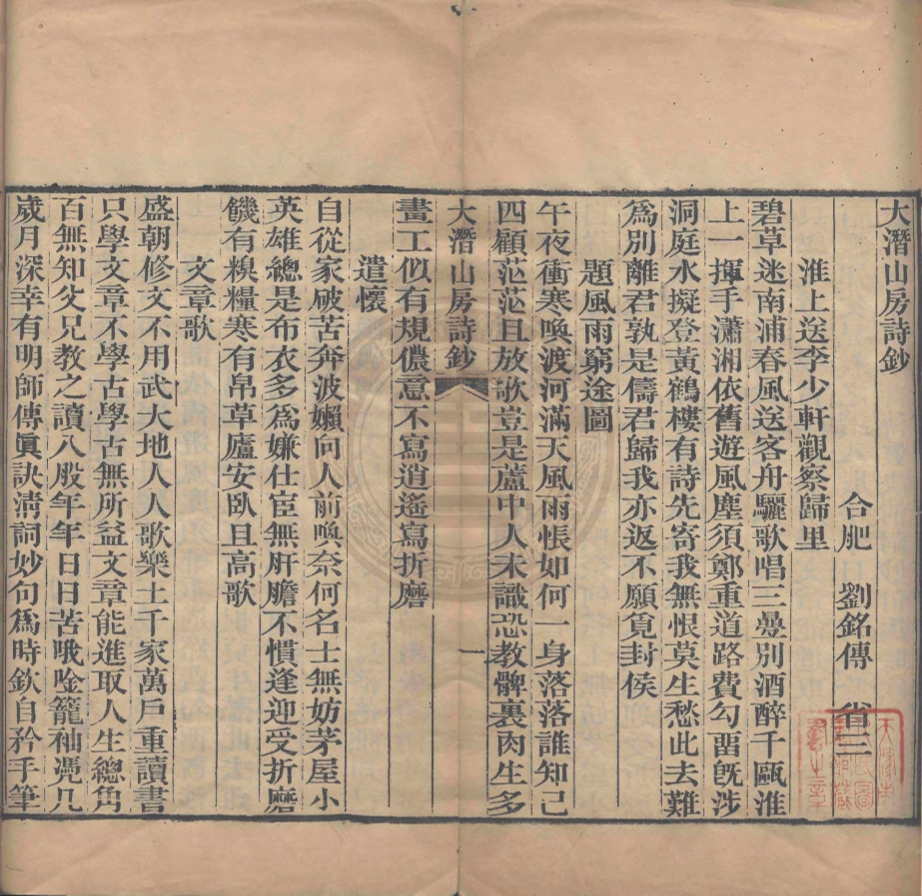 大潛山房詩鈔
合肥　劉銘傳　省三
淮上送李少軒觀察歸里
碧草迷南浦春風送客舟驪歌唱三疊別酒醉千甌淮
上一揮手瀟湘依舊遊風塵須鄭重道路費勾畱既涉
洞庭水擬登黃鶴樓有詩先寄我無恨莫生愁此去難
爲別離君孰是儔君歸我亦返不願覓封侯
題風雨窮途圖
午夜衝寒喚渡河滿天風雨悵如何一身落落誰知己
四顧茫茫且放歌豈是蘆中人未識恐教髀裏肉生多
大潛山房詩鈔　一
畫工似有規儂意不寫逍遙寫折磨
遣懷
自從家破苦奔波嬾向人前喚奈何名士無妨茅屋小
英雄總是布衣多爲嫌仕宦無肝膽不慣逢迎受折磨
饑有糗糧寒有帛草廬安臥且高歌
文章歌
盛朝修文不用武大地人人歌樂土千家萬戶重讀書
只學文章不學古學古無所益文章能進取人生總角
百無知父兄教之讀八股年年日日苦哦唫籠袖憑几
歲月深幸有明師傳眞訣清詞妙句爲時欽自矜手筆